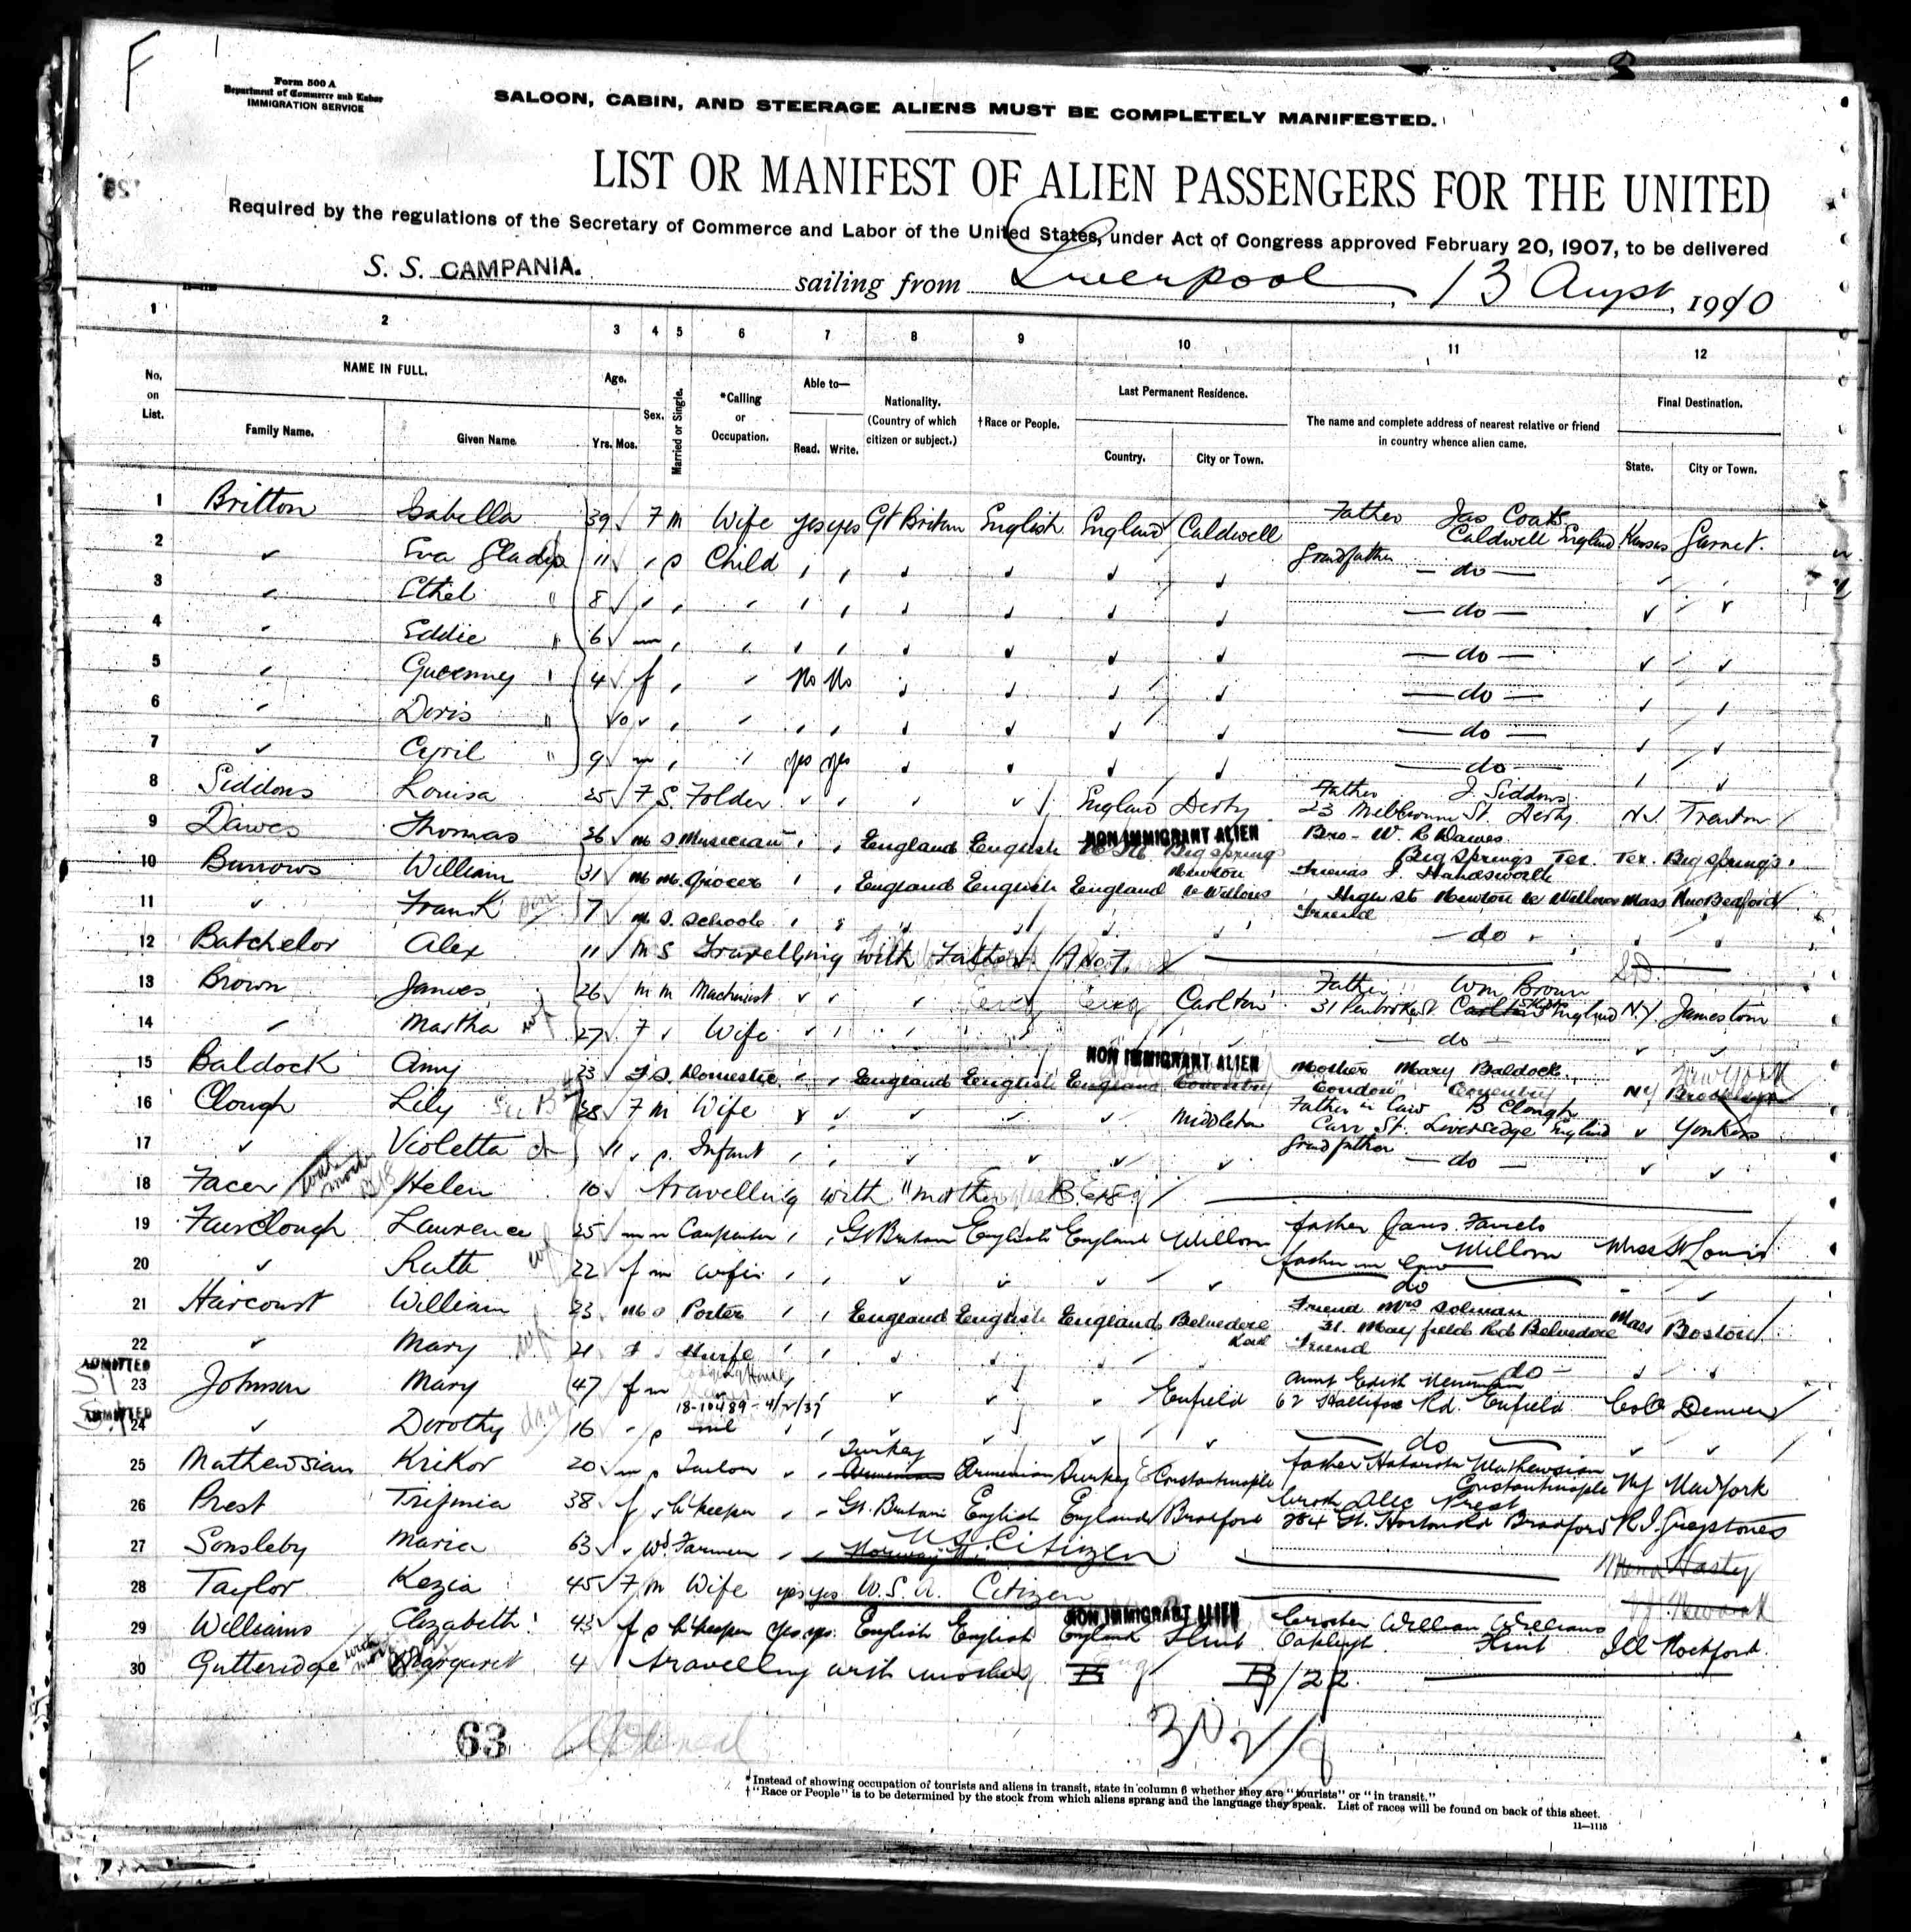 F
Form 500 A
Department of Commerce and Labor
IMMIGRATION SERVICE
SALOON, CABIN, AND STEERAGE ALIENS MUST BE COMPLETELY MANIFESTED.
LIST OR MANIFEST OF ALIEN PASSENGERS FOR THE UNITED
Required by the regulations of the Secretary of Commerce and Labor of the United States, under Act of Congress approved February 20, 1907, to be delivered
S. S. CAMPANIA. sailing from Liverpool, 13 August, 1910
1 2 3 4 5 6 7 8 9 10 11 12
No. on List. NAME IN FULL. Age. Sex. Married or Single. *Calling or Occupation. Able to— Nationality. (Country of which citizen or subject.) †Race or People. Last Permanent Residence. The name and complete address of nearest relative or friend in country whence alien came. Final Destination.
Family Name. Given Name. Yrs. Mos. Read. Write. Country. City or Town. State. City or Town.
1 Britton Isabella 39 F M Wife yes yes Gt Britain English England Caldwell Father Jas Coats Caldwell England Kansas Garnet.
2 Eva Gladys 11 S Child Grandfather do
3 Ethel 8 do
4 Eddie 6 m do
5 4 f No No do
6 Doris do
7 Cyril 9 m yes yes do
8 Siddons Louisa 25 F S. Folder England Derby Father J. Siddons 23 Melbourne St. Derby N.J. Trenton
9 Dawes Thomas 26 M S Musician England English NON IMMIGRANT ALIEN Big Spring Bro- W. R Dawes Big Springs Tex. Tex. Big Springs
10 Burrows William 31 M M. Grocer England English England Newton le Willows Friend J. Handsworth High St Newton le Willows Mass New Bedford
11 Frank son 7 M S. Schools Friend do
12 Batchelor Alex 11 M S Travelling with Father
13 Brown James 26 M M Machinist Carlton Father Wm Brown 31 Pembroke St. England N.Y. Jamestown
14 Martha wf 27 F Wife do
15 Baldock Amy 23 F S. Domestic England English England Coventry NON IMMIGRANT ALIEN Mother Mary Baldock "London" Coventry NY Brooklyn New York
16 Clough Lily 38 F M Wife Middleton Father in Law B Clough Carr St. Liversedge England Yonkers
17 Violetta 11 S. Infant Grandfather do
18 Facer with mother Helen 10 travelling with mother
19 Fairclough Laurence 25 m m Carpenter Gt Britain English England father St Louis
20 Ruth wf 22 f m wife father in law do
21 Harcourt William 23 M Porter England English England Belvedere Friend Mrs Solman 31. Mayfield Rd Belvedere Mass Boston
22 Mary wf 21 Wife Friend do
ADMITTED
23 Johnson Mary 47 f m 18-10489-4/2/37 Enfield Aunt Edith Newman 62 Rd. Enfield Colo Denver
ADMITTED
24 Dorothy dau 16 nil do
25 Mathewsian Krikor 20 m s Turkey Armenian Armenian Turkey Constantinople father Mathewsian Constantinople NY New York
26 Prest 38 f H'keeper Gt. Britain English England Bradford Alec Prest 284 Gt. Horton Rd Bradford R.I. Greystones
27 Sonsleby Maria 63 Wd. Norway U.S. Citizen Hasty
28 Taylor Kezia 45 F M Wife yes yes U.S.A. Citizen Newark
29 Williams Elizabeth 43 f s H'keeper yes yes. English English England Flint NON IMMIGRANT ALIEN brother William Williams Oakleigh Flint Ill Rockford.
30 Gutteridge with mother Margaret 4 travelling with mother B B/22
63
*Instead of showing occupation of tourists and aliens in transit, state in column 6 whether they are "tourists" or "in transit."
†"Race or People" is to be determined by the stock from which aliens sprang and the language they speak. List of races will be found on back of this sheet.
11—1115